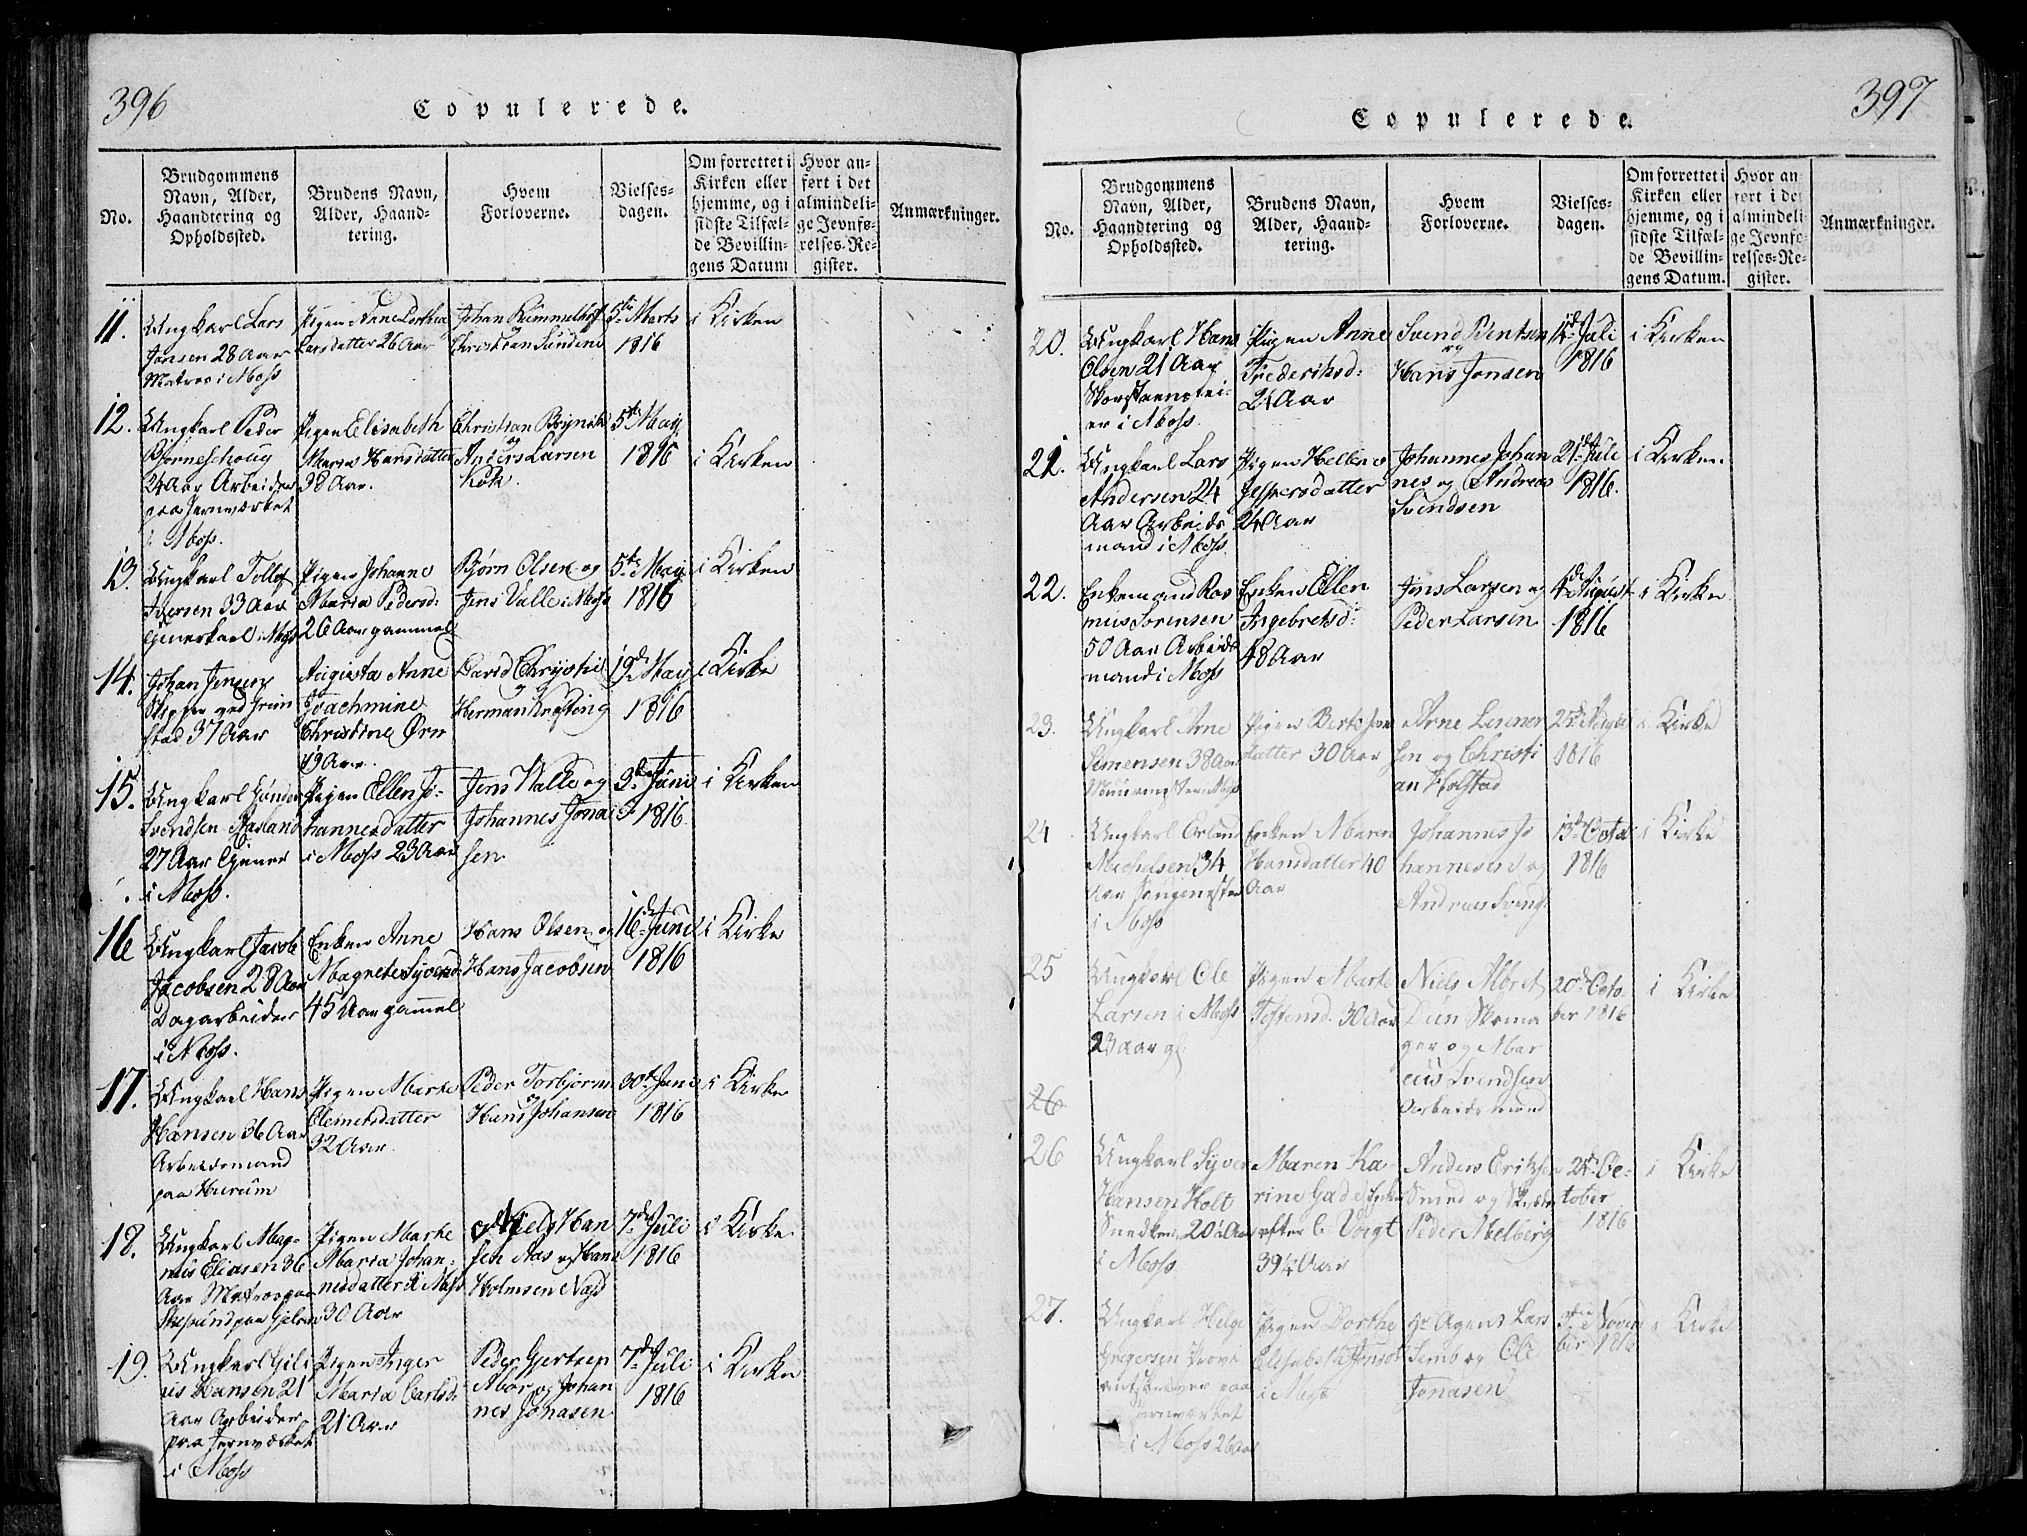 396
Copulerede.
No.
Brudgommens Navn, Alder, Haandtering og Opholdssted.
Brudens Navn, Alder, Haandtering.
Hvem Forloverne.
Vielsesdagen.
Om forrettet i Kirken eller hjemme, og i sidste Tilfælde Bevillingens Datum
Hvor anført i det almindelige Jevnførelses-Register.
Anmærkninger.
11. Ungkarl Lars Jensen 28 Aar Matros i Moss
Pigen Anne Dorthea Larsdatter 26 Aar
Johan Rimmelhof Christian Sundene
5te Marts 1816
i Kirken
12. Ungkarl Peder Bjørneschoug 24 Aar Arbeider paa Jernværket i Moss.
Pigen Elisabeth Maria Hansdatter 38 Aar.
Christian og Anders Larsen Kok.
5te Maij 1816
i Kirken
13. Ungkarl Tollof Iversen 33 Aar i Moss
Pigen Johanne Maria Pedersd: 26 Aar gammel
Bjørn Olsen og Jens Valle i Moss
5te Maij 1816
i Kirken
14. Johan Jensen Skipper ved Grimstad 37 Aar
Augusta Anne Joachmine Christine Ørn 19 Aar.
David Chrystie og Herman Krefting
19de Maij 1816
i Kirke
15. Ungkarl Gunder Svendsen Aasland 27 Aar i Moss.
Pigen Ellen Johannesdatter i Moss 23 Aar
Jens Walle og Johannes Jonasen
3de Juni 1816
i Kirken
16 Ungkarl Jacob Jacobsen 28 Aar Dagarbeider i Moss.
Enken Anne Magrete Syversd 45 Aar gammel
Hans Olsen og Hans Jacobsen
16de Juni 1816
i Kirke
17. Ungkarl Hans Hansen 36 Aar Arbeidsmand paa
Pigen Marte Clemetsdatter 32 Aar
Peder Torbjørns og Hans Johansen
30te Juni 1816
i Kirke
18. Ungkarl Magnus Eliasen 36 Aar Matros paa
Pigen Marthe Maria Johannesdatter i Moss 30 Aar
Niels Hansen Aas og Hans Holmsen Næs
7de Juli 1816
i Kirke
19. Ungkarl Hansen 21 Aar Arbeider paa Jernværket i Moss
Pigen Inger Maria Carlsd: 21 Aar
Peder Gjertsen Moor og Johannes Jonasen
7de Juli 1816
i Kirken
397
Copulerede.
No.
Brudgommens Navn, Alder, Haandtering og Opholdssted.
Brudens Navn, Alder, Haandtering.
Hvem Forloverne.
Vielsesdagen.
Om forrettet i Kirken eller hjemme, og i sidste Tilfælde Bevillingens Datum.
Hvor anført i det almindelige Jevnførelses-Register.
Anmærkninger.
20. Ungkarl Hans Olsen 21 Aar i Moss
Pigen Anne Frederiksd: 24 Aar
Svend Bentsen og Hans Jonsen
14de Juli 1816
i Kirken
21. Ungkarl Lars Andersen 24 Aar Arbeidsmand i Moss
Pigen Hellene Jespersdatter 24 Aar
Johannes Johannes og Andreas Svendsen
21de Juli 1816.
i Kirken
22. Enkemand Rasmus Sørensen 50 Aar Arbeidsmand i Moss
Enken Ellen Ingebretsd: 48 Aar
Jens Larsen og Peder Larsen
4de August 1816
i Kirken
23. Ungkarl Arne Simensen 38 Aar Muurmester i Moss
Pigen Berte Jonsdatter 30 Aar
Arne og Christian Holstad
25de 1816
i Kirke
24 Ungkarl Michelsen 34 Aar i Moss
Enken Maren Hansdatter 40 Aar
Johannes Johannesen og Andreas Svend
13de Octob 1816
i Kirke
25 Ungkarl Ole Larsen i Moss 23 Aar g:
Pigen Marte 30 Aar
Niels Dün Skomager og Marcus Svendsen Arbeidsmand
20de October 1816
i Kirke
26
26 Ungkarl Syver Hansen Holt Snedker 20 Aar i Moss
Maren Karine Gade Enke efter C. Voigt 39 1/4 Aar
Anders Eriksen Smed og Peder Melberg
24de October 1816
i Kirke
27. Ungkarl Helge Gregersen paa Jernværket i Moss 26 Aar
Pigen Dorthe i Moss
Hr Agent Lars Semb og Ole Jonasen
November 1816
i Kirke